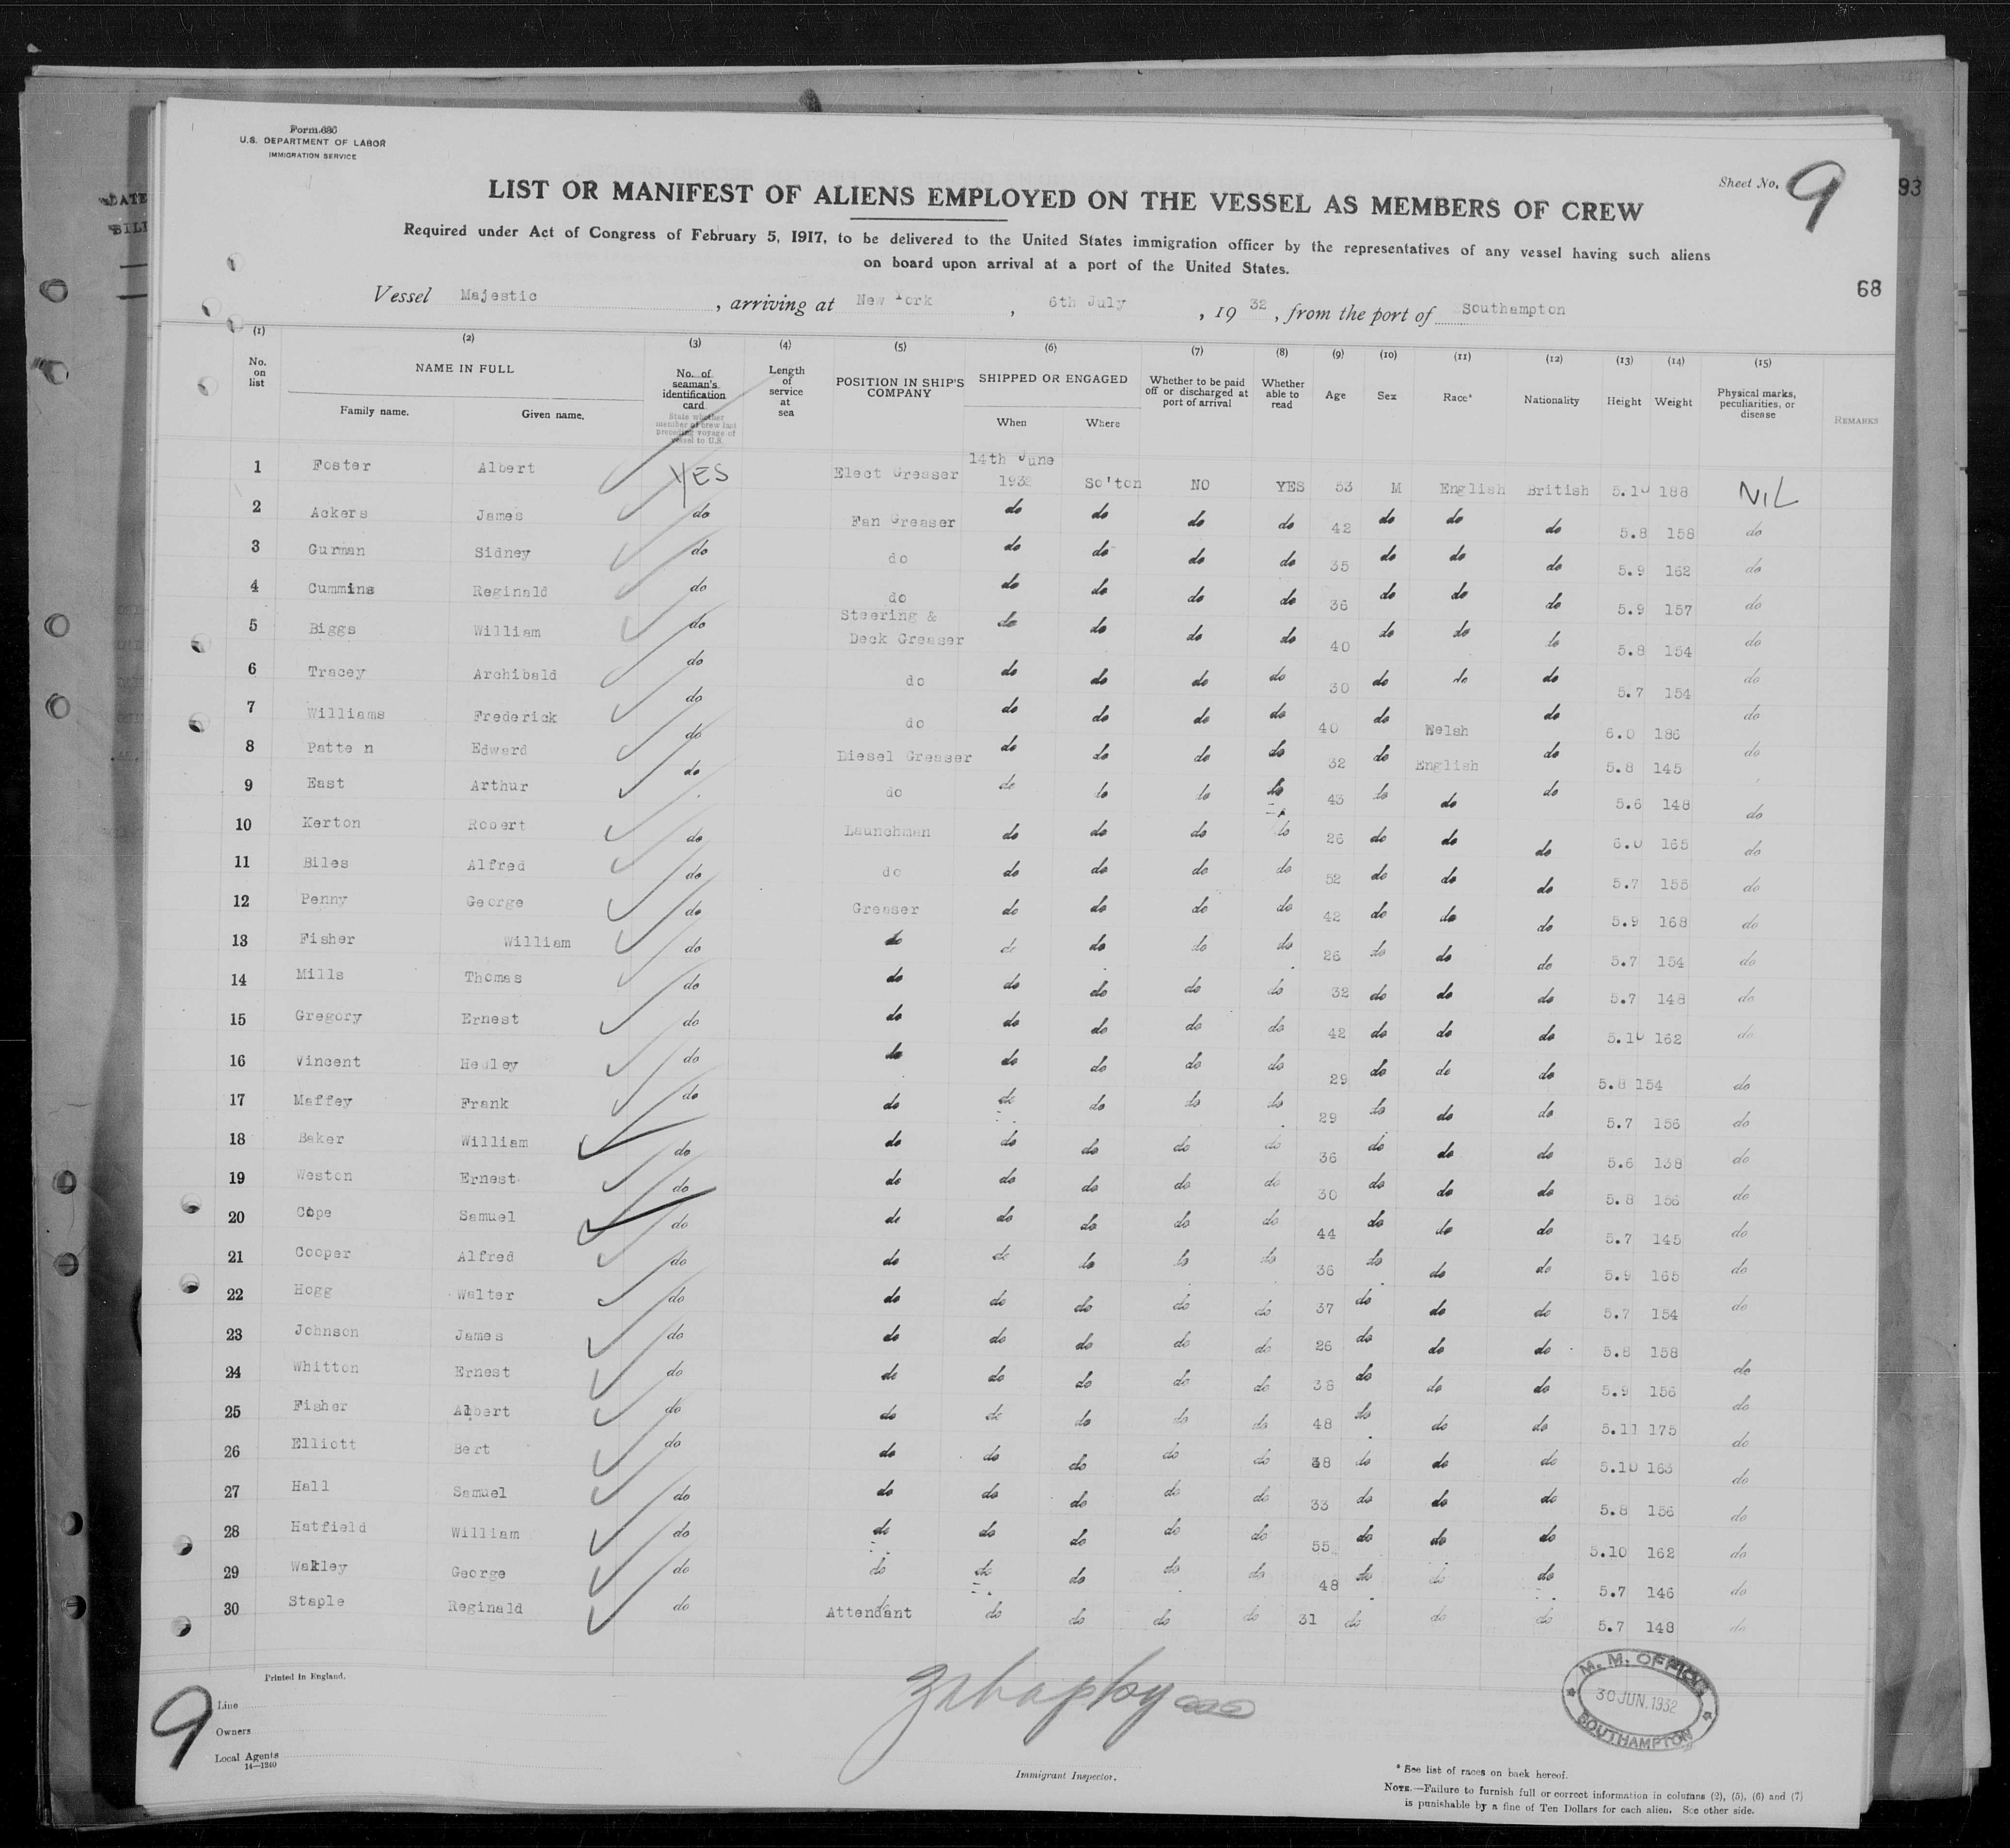 Form 686
U.S. DEPARTMENT OF LABOR
IMMIGRATION SERVICE
Sheet No. 9
93
LIST OR MANIFEST OF ALIENS EMPLOYED ON THE VESSEL AS MEMBERS OF CREW
Required under Act of Congress of February 5, 1917, to be delivered to the United States immigration officer by the representatives of any vessel having such aliens
on board upon arrival at a port of the United States.
68
Vessel Majestic, arriving at New York, 6th July, 19 32, from the port of Southampton
(1) (2) (3) (4) (5) (6) (7) (8) (9) (10) (11) (12) (13) (14) (15)
No. on list NAME IN FULL Family name. Given name. No. of seaman's identification card State whether member of crew last preceding voyage of vessel to U.S. Length of service at sea POSITION IN SHIP'S COMPANY SHIPPED OR ENGAGED When Where Whether to be paid off or discharged at port of arrival Whether able to read Age Sex Race* Nationality Height Weight Physical marks, peculiarities, or disease REMARKS
1 Foster Albert YES Elect Greaser 14th June 1932 So'ton NO YES 53 M English British 5.10 188 NIL
2 Ackers James do Fan Greaser do do do do 42 do do do 5.8 158 do
3 Gurman Sidney do do do do do do 35 do do do 5.9 162 do
4 Cummins Reginald do do do do do do 36 do do do 5.9 157 do
5 Biggs William do Steering & Deck Greaser do do do do 40 do do do 5.8 154 do
6 Tracey Archibald do do do do do do 30 do do do 5.7 154 do
7 Williams Frederick do do do do do do 40 do Welsh do 6.0 186 do
8 Patte n Edward do Diesel Greaser do do do do 32 do English do 5.8 145 do
9 East Arthur do do do do do do 43 do do do 5.6 148 do
10 Kerton Robert do Launchman do do do do 26 do do do 6.0 165 do
11 Biles Alfred do do do do do do 52 do do do 5.7 155 do
12 Penny George do Greaser do do do do 42 do do do 5.9 168 do
13 Fisher William do do do do do do 26 do do do 5.7 154 do
14 Mills Thomas do do do do do do 32 do do do 5.7 148 do
15 Gregory Ernest do do do do do do 42 do do do 5.10 162 do
16 Vincent Hedley do do do do do do 29 do do do 5.8 154 do
17 Maffey Frank do do do do do do 29 do do do 5.7 156 do
18 Baker William do do do do do do 36 do do do 5.6 138 do
19 Weston Ernest do do do do do do 30 do do do 5.8 156 do
20 Cope Samuel do do do do do do 44 do do do 5.7 145 do
21 Cooper Alfred do do do do do do 36 do do do 5.9 165 do
22 Hogg Walter do do do do do do 37 do do do 5.7 154 do
23 Johnson James do do do do do do 26 do do do 5.8 158
24 Whitton Ernest do do do do do do 38 do do do 5.9 156 do
25 Fisher Albert do do do do do do 48 do do do 5.11 175 do
26 Elliott Bert do do do do do do 38 do do do 5.10 163 do
27 Hall Samuel do do do do do do 33 do do do 5.8 156 do
28 Hatfield William do do do do do do 55 do do do 5.10 162 do
29 Wakley George do do do do do do 48 do do do 5.7 146 do
30 Staple Reginald do Attendant do do do do 31 do do do 5.7 148 do
Printed in England.
9
Line
Owners
Local Agents
14—1240
Immigrant Inspector.
M. M. OFFICE
30 JUN. 1932
SOUTHAMPTON
* See list of races on back hereof.
NOTE.—Failure to furnish full or correct information in columns (2), (5), (6) and (7)
is punishable by a fine of Ten Dollars for each alien. See other side.